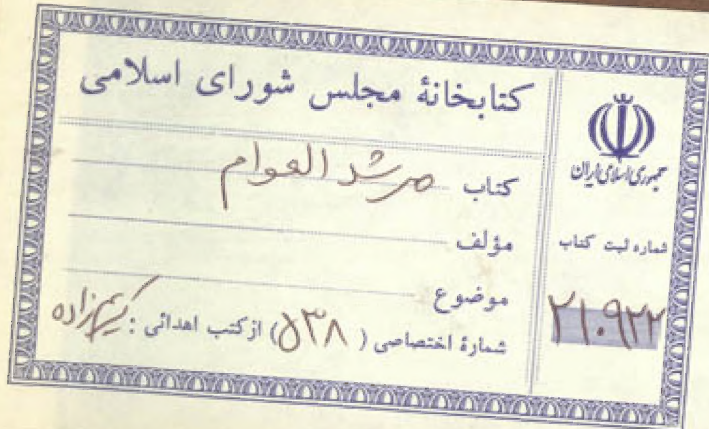 کتابخانهٔ مجلس شورای اسلامی
کتاب مرشد العوام
مؤلف
موضوع
شمارهٔ اختصاصی ( ۵۳۸ ) از کتب اهدائی : کریم‌زاده
جمهوری اسلامی ایران
شماره ثبت کتاب
۲۱۰۹۲۲